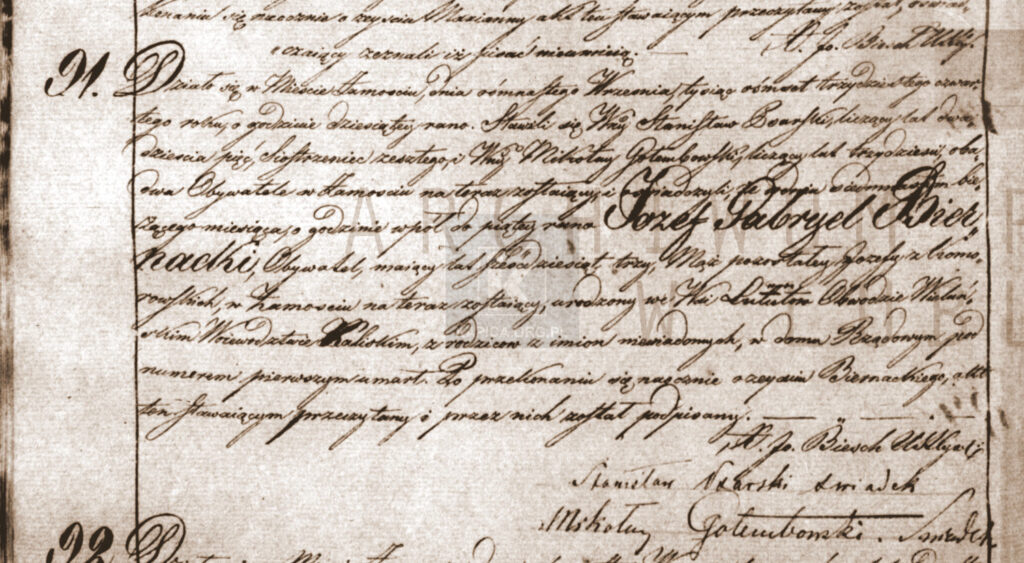 konaniu się naocznie o zejściu Marianny akt ten stawaiącym przeczytany został, oświad„
czaiący zeznali iż pisać nieumieią. —
X. Jo. Biesch Wikky.
91. Działo się w Mieście Zamościu, dnia ośmnastego Września, tysiąc ośmset trzydziestego czwar„
tego roku, o godzinie dziesiątey rano. Stawili się Wny Stanisław Psarski, liczący lat dwa„
dzieścia pięć, Siostrzeniec zeszłego, i Wny Mikołay Gołembowski, liczący lat trzydzieści, oba„
dwa Obywatele w Zamościu na teraz zostaiący, i oświadczyli, że dnia bie„
żącego miesiąca, o godzinie w pół do piątey rano Jozef Gabryel Bier„
nacki, Obywatel, maiący lat sześćdziesiąt trzy, Mąż pozostałey Jozefy z
rowskich, w Zamościu na teraz zostaiący, urodzony we Wsi Lututow Obwodzie Wieluń„
skim Woiewodztwie Kaliskim, z rodzicow z imion niewiadomych, w domu Rządowym pod
numerem pierwszym umarł. Po przekonaniu się naocznie o zeyściu Biernackiego, akt
ten stawaiącym przeczytany i przez nich został podpisany. —
X. Jo. Biesch Wikky
Stanisław Psarski świadek
Mikołay Gołembowski. Świadek
92.